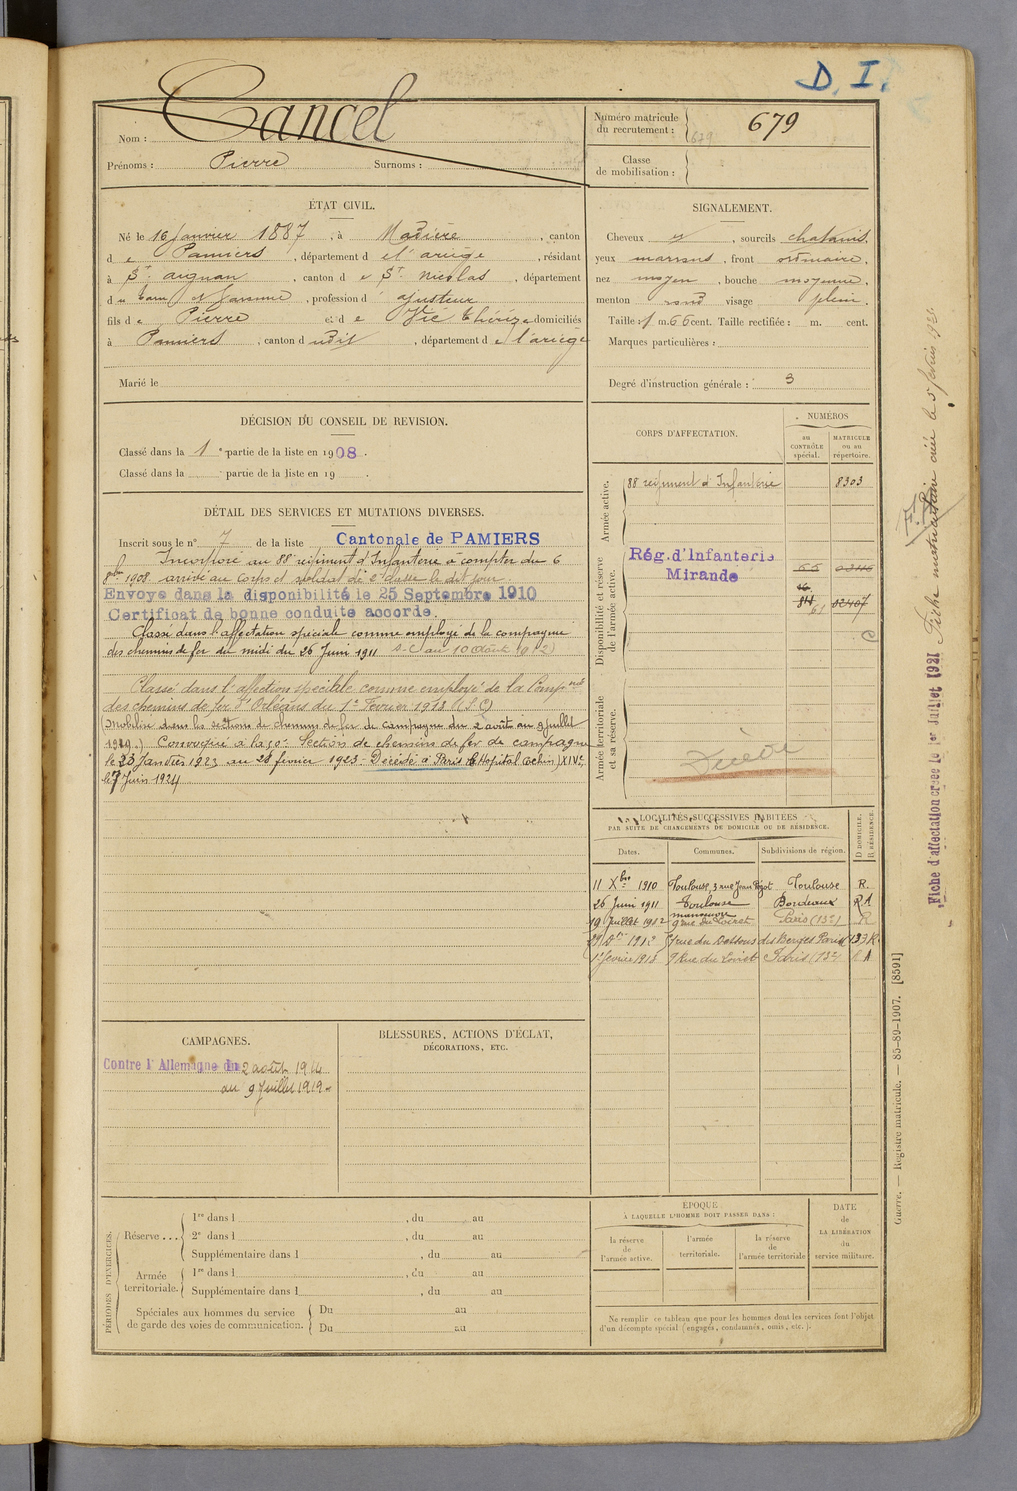 D. I.
Nom : Cancel
Prénoms : Pierre Surnoms :
Numéro matricule du recrutement : 679
Classe de mobilisation :
ÉTAT CIVIL.
Né le 16 Janvier 1887, à Madière, canton
de Pamiers, département de l'ariège, résidant
à St aignan, canton de St nicolas, département
du tarn et Garonne, profession d'ajusteur
fils de Pierre et de Vié thérèze domiciliés
à Pamiers, canton dudit, département de l'ariège
Marié le
SIGNALEMENT.
Cheveux et, sourcils chatains,
yeux marrons, front ordinaire,
nez moyen, bouche moyenne,
menton rond visage plein.
Taille : 1 m. 66 cent. Taille rectifiée : m. cent.
Marques particulières :
Degré d'instruction générale : 3
DÉCISION DU CONSEIL DE REVISION.
Classé dans la 1e partie de la liste en 1908.
Classé dans la partie de la liste en 19 .
DÉTAIL DES SERVICES ET MUTATIONS DIVERSES.
Inscrit sous le n° 7 de la liste Cantonale de PAMIERS
Incorporé au 88e régiment d'Infanterie à compter du 6
8bre 1908. arrivé au Corps et soldat de 2e classe le dit jour.
Envoyé dans la disponibilité le 25 Septembre 1910
Certificat de bonne conduite accordé.
Classé dans l'affectation spéciale comme employé de la compagnie
des chemins de fer du midi du 26 Juin 1911
Classé dans l'affection spéciale comme employé de la Compnie
des chemins de fer d'Orléans du 1er Fevrier 1913 (S.C)
Mobilisé dans les sections de chemins de fer de campagne du 2 août au 9 juillet
1919. Convoqué à la 50e Section de chemins de fer de campagne
le 23 Janvier 1923 au 28 février 1923 - Décédé à Paris (Hopital Cochin) XIVe,
le 7 Juin 1924
CORPS D'AFFECTATION.
NUMÉROS
au CONTRÔLE spécial.
MATRICULE ou au répertoire.
Armée active.
88 régiment d'Infanterie 8303
Disponibilité et réserve de l'armée active.
Rég. d'Infanterie
Mirande
Armée territoriale et sa réserve.
Décédé
LOCALITÉS SUCCESSIVES HABITÉES
PAR SUITE DE CHANGEMENTS DE DOMICILE OU DE RÉSIDENCE.
Dates. Communes. Subdivisions de région. D DOMICILE. R RÉSIDENCE.
11 Xbre 1910 Toulouse, 3 rue Jean Toulouse R.
26 Juin 1911 Toulouse Bordeaux RA
19 Juillet 1912 9 rue du Loiret Paris (13e) R
rue du Dessous des Berges Paris (13) R
1er février 1913 9 Rue du Loiret Paris (13e) RA
CAMPAGNES.
Contre l'Allemagne du 2 août 1914
au 9 Juillet 1919.
BLESSURES, ACTIONS D'ÉCLAT,
DÉCORATIONS, ETC.
PÉRIODES D'EXERCICES.
Réserve ... 1re dans l , du au
2e dans l , du au
Supplémentaire dans l , du au
Armée territoriale. 1re dans l , du au
Supplémentaire dans l , du au
Spéciales aux hommes du service de garde des voies de communication. Du au
Du au
ÉPOQUE
À LAQUELLE L'HOMME DOIT PASSER DANS :
la réserve de l'armée active.
l'armée territoriale.
la réserve de l'armée territoriale
DATE de LA LIBÉRATION du service militaire.
Ne remplir ce tableau que pour les hommes dont les services font l'objet
d'un décompte spécial (engagés, condamnés, omis, etc.).
Fiche d'affectation créée le 1er Juillet 1921
Fiche matriculaire créée le 5 février 1922
Guerre. — Registre matricule. — 85-89-1907. [8591]